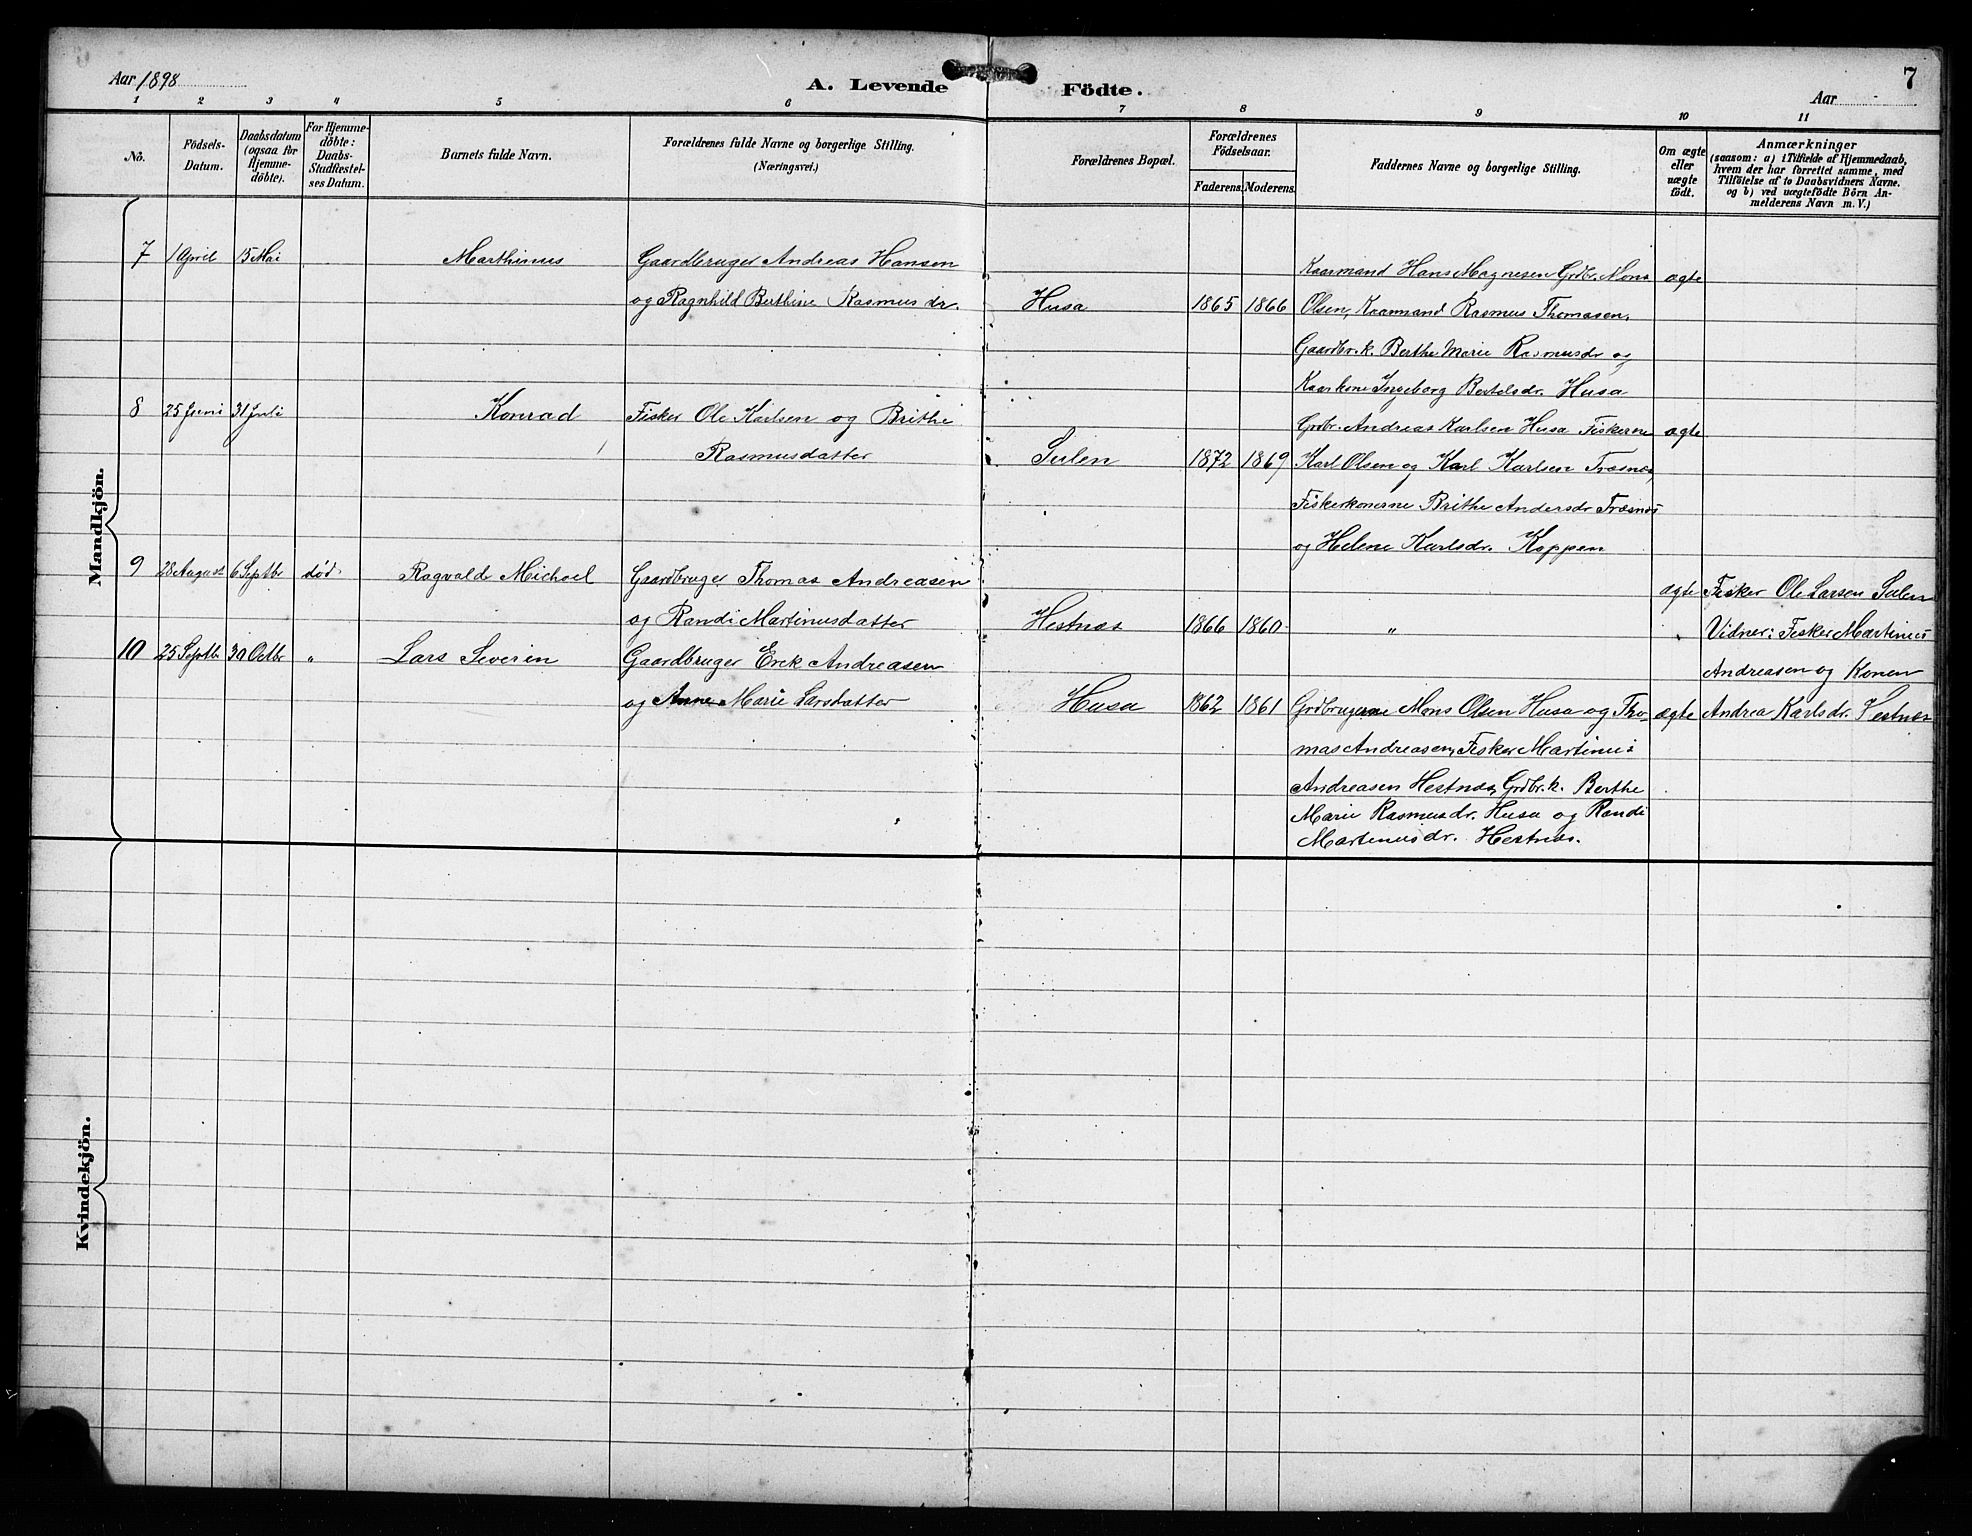 Aar 1898
A. Levende Födte.
7
Aar
1 2 3 4 5 6 7 8 9 10 11
No.
Födsels-Datum.
Daabsdatum (ogsaa for Hjemme-döbte).
For Hjemme-döbte: Daabs-Stadfæstel-ses Datum.
Barnets fulde Navn.
Forældrenes fulde Navne og borgerlige Stilling.
(Næringsvei.)
Forældrenes Bopæl.
Forældrenes Födselsaar.
Faderens. Moderens.
Faddernes Navne og borgerlige Stilling.
Om ægte eller uægte födt.
Anmærkninger
(saasom: a) i Tilfælde af Hjemmedaab,
hvem der har forrettet samme, med
Tilföielse af to Daabsvidners Navne.
og b) ved uægtefödte Börn An-
melderens Navn m. V.)
Mandkjön.
7 1 April 15 Mai Marthinus Gaardbruger Andreas Hansen
og Ragnhild Berthine Rasmusdr. Husa 1865 1866
Kaarmand Hans Magnesen Grdbr. Mons ægte
Olsen, Kaarmand Rasmus Thomasen,
Gaardbr.k. Berthe Marie Rasmusdr og
Kaarkone Ingeborg Bertelsdr. Husa
8 25 Juni 31 Juli Konrad Fisker Ole Karlsen og Brithe
Rasmusdatter Sulen 1872 1869
Grdbr. Andreas Karlsen Husa Fiskerne ægte
Karl Olsen og Karl Karlsen Træsnes,
Fiskerkonerne Brithe Andersdr Træsnes
og Helene Karlsdr. Koppen
9 28 August 6 Septbr død Ragvald Michael Gaardbruger Thomas Andreasen
og Randi Martinusdatter Hestnes 1866 1860 "
ægte Fisker Ole Larsen Sulen
Vidner: Fisker Martinus
Andreasen og Konen
Andrea Karlsdr. Hestnes
10 25 Septbr 30 Octbr " Lars Severin Gaardbruger Erek Andreasen
og Anne Marie Larsdatter Husa 1862 1861
Grdbrugerne Mons Olsen Husa og Tho- ægte
mas Andreasen, Fisker Martinus
Andreasen Hestnes, Grdbr.k. Berthe
Marie Rasmusdr. Husa og Randi
Martinusdr. Hestnes.
Kvindekjön.